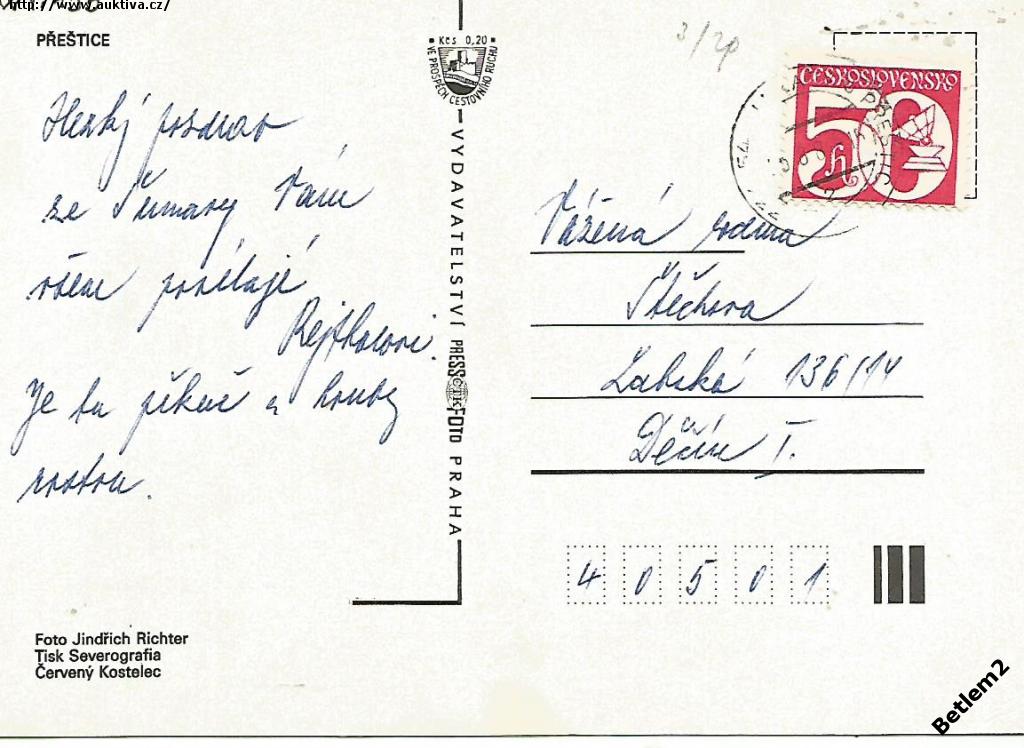 http://www.auktiva.cz/
PŘEŠTICE
Hezký pozdrav
ze Šumavy Vám
všem posílají
Rejthárovi.
Je tu pěkně a houby
rostou.
Foto Jindřich Richter
Tisk Severografia
Červený Kostelec
Kčs 0,20
VE PROSPĚCH CESTOVNÍHO RUCHU
VYDAVATELSTVÍ PRESSFOTO PRAHA
3/20
ČESKOSLOVENSKO
50 h
Vážená rodina
Štěchova
Labská 136/14
Děčín I.
40501
Betlem2